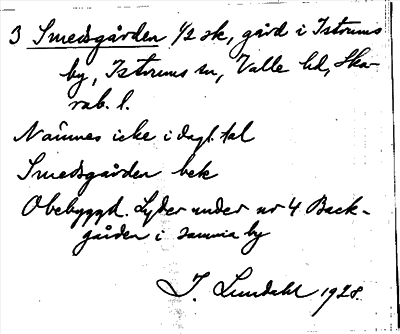 3 Smedsgården 1/2 sk, gård i Istrums
by, Istrums sn, Valle hd, Ska-
rab. l.
Nämnes icke i dagl. tal
Smedsgården bek
Obebyggd. Lyder under nr 4 Back-
gården i samma by
I. Lundahl 1928.